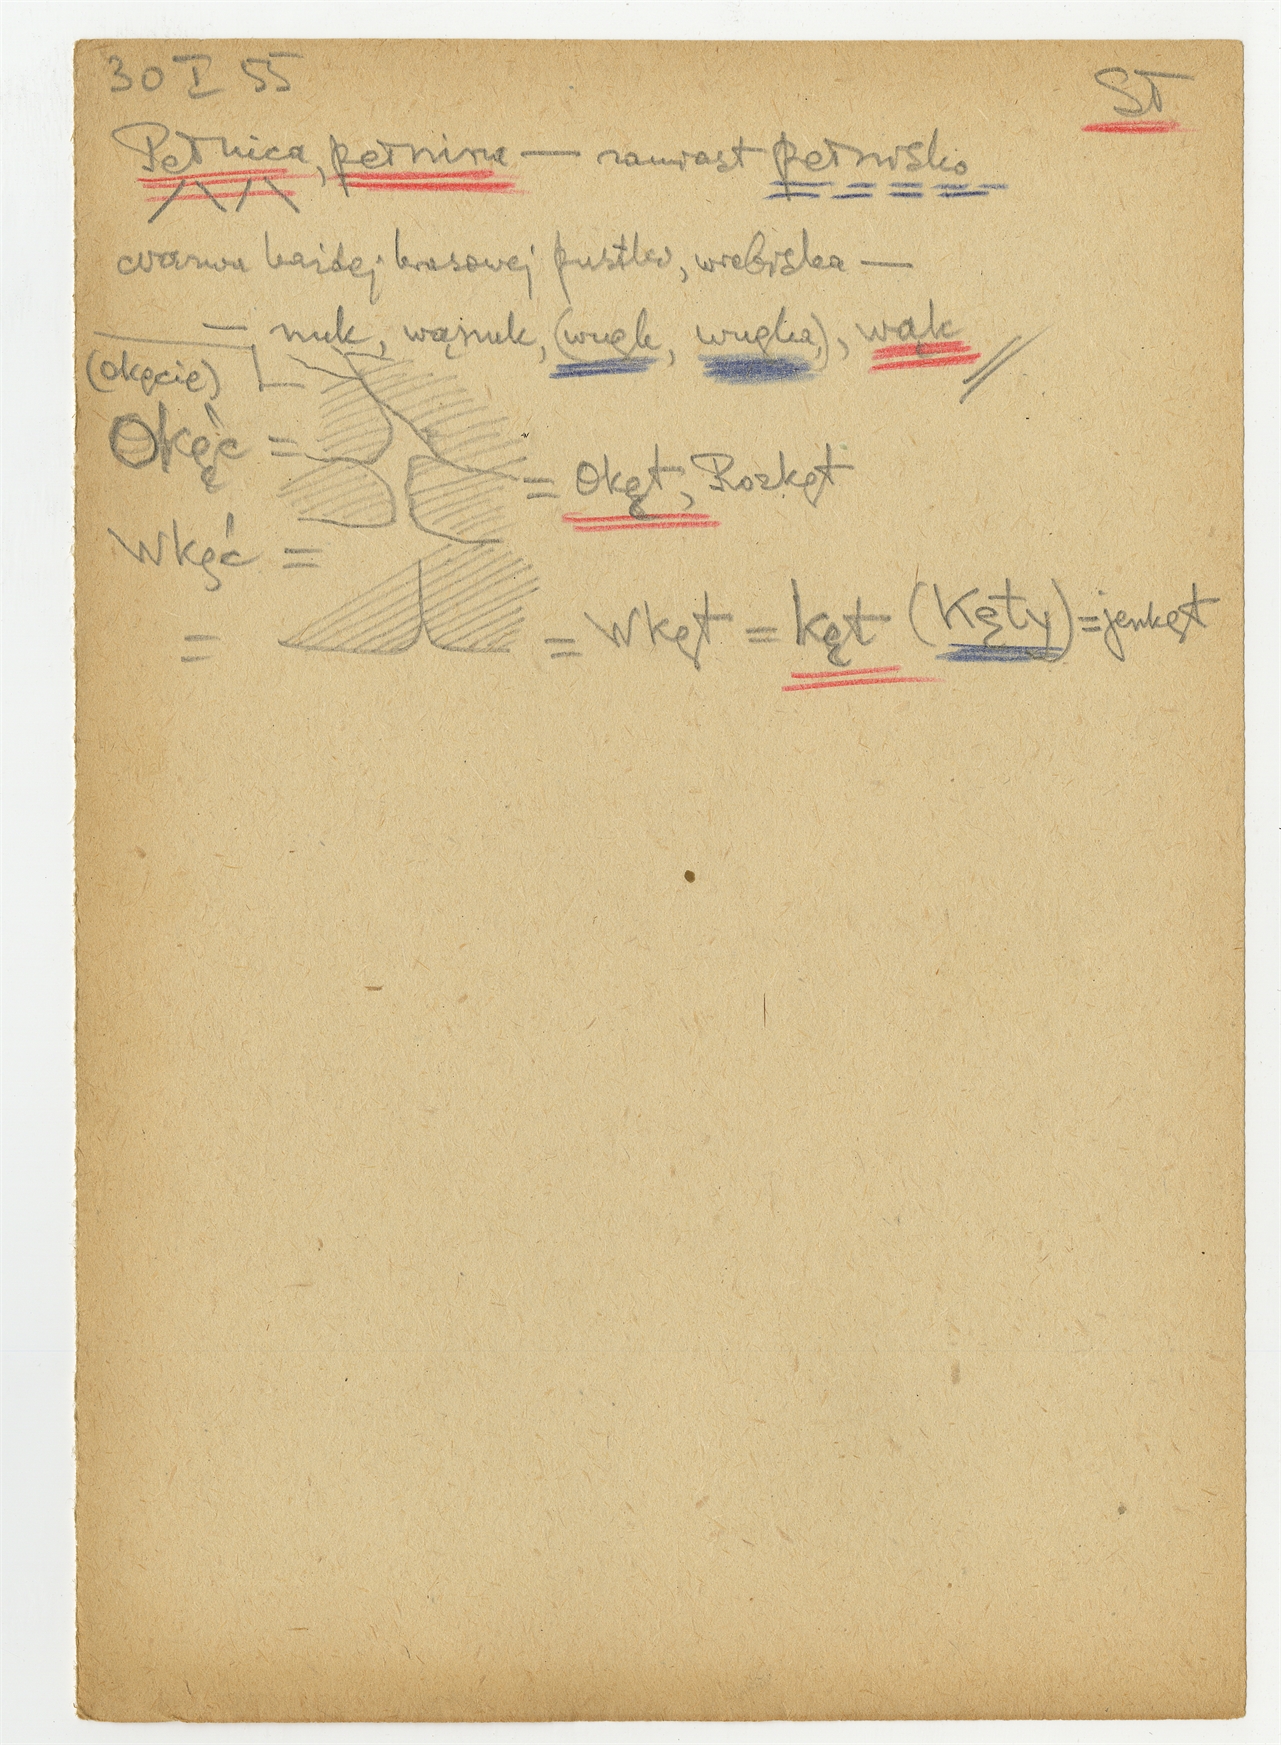 30 I 55
SŁ
Pełnica, pełnina — zamiast pełnisko
każdej krasowej pustki, wrębiska —
nuk, wąnuk, (wnęk, wnęka), wąk
(okęcie)
Okęć =
= Okęt, Rozkęt
Wkęć =
= = Wkęt = kęt (Kęty) = jenkęt